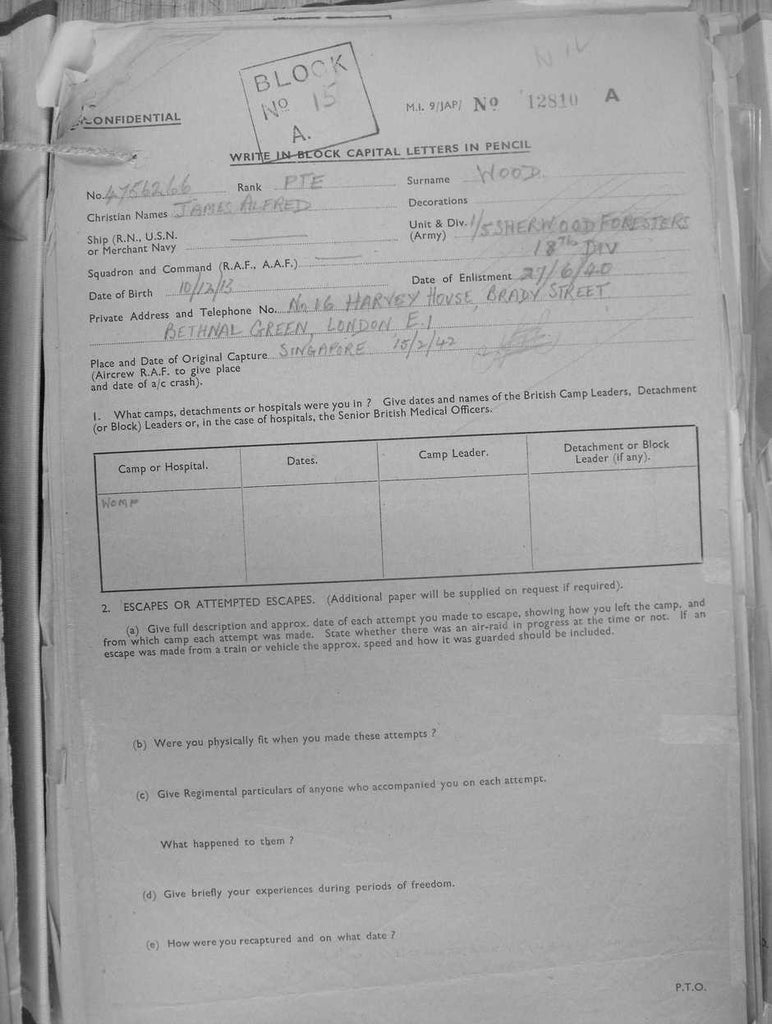 BLOCK
No 15
A.
CONFIDENTIAL
M.I. 9/JAP/ No 12810 A
WRITE IN BLOCK CAPITAL LETTERS IN PENCIL
No. 4756266 Rank PTE Surname WOOD
Christian Names JAMES ALFRED Decorations
Ship (R.N., U.S.N. or Merchant Navy Unit & Div. (Army) 1/5 SHERWOOD FORESTERS
18TH DIV
Squadron and Command (R.A.F., A.A.F.)
Date of Birth 10/12/13 Date of Enlistment 27/6/40
Private Address and Telephone No. No. 16 HARVEY HOUSE, BRADY STREET
BETHNAL GREEN, LONDON E.1
Place and Date of Original Capture SINGAPORE 15/2/42
(Aircrew R.A.F. to give place
and date of a/c crash).
1. What camps, detachments or hospitals were you in ? Give dates and names of the British Camp Leaders, Detachment
(or Block) Leaders or, in the case of hospitals, the Senior British Medical Officers.
Camp or Hospital. Dates. Camp Leader. Detachment or Block Leader (if any).
2. ESCAPES OR ATTEMPTED ESCAPES. (Additional paper will be supplied on request if required).
(a) Give full description and approx. date of each attempt you made to escape, showing how you left the camp, and
from which camp each attempt was made. State whether there was an air-raid in progress at the time or not. If an
escape was made from a train or vehicle the approx. speed and how it was guarded should be included.
(b) Were you physically fit when you made these attempts ?
(c) Give Regimental particulars of anyone who accompanied you on each attempt.
What happened to them ?
(d) Give briefly your experiences during periods of freedom.
(e) How were you recaptured and on what date ?
P.T.O.